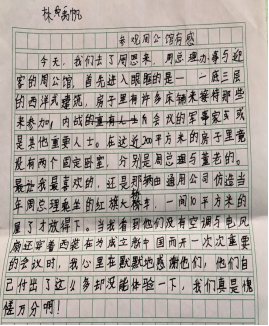 参观周公馆有感
今天，我们去了周恩来、周总理办事与迎
客的周公馆，首先进入眼睛的是一一底三层
的西洋式建筑，房子里有许多床铺来接待那些
来参加，内战的重有人士会议的军事家或
是其他重要人士。在这近200平方米的房子里竟
没有两个固定卧室，分别是周总理与董老的。
最让我最喜欢的，还是那辆由通用公司仿造当
年周总理乘坐的红旗大轿车，一间10平方米的
屋了才放得下。当我看到他们没有空调与电风
扇还穿着西装在为成立新中国而开一次次重要
的会议时，我心里在默默地感谢他们，他们自
己付出了这么多却没能体验一下，我们真是愧
佳万分啊！